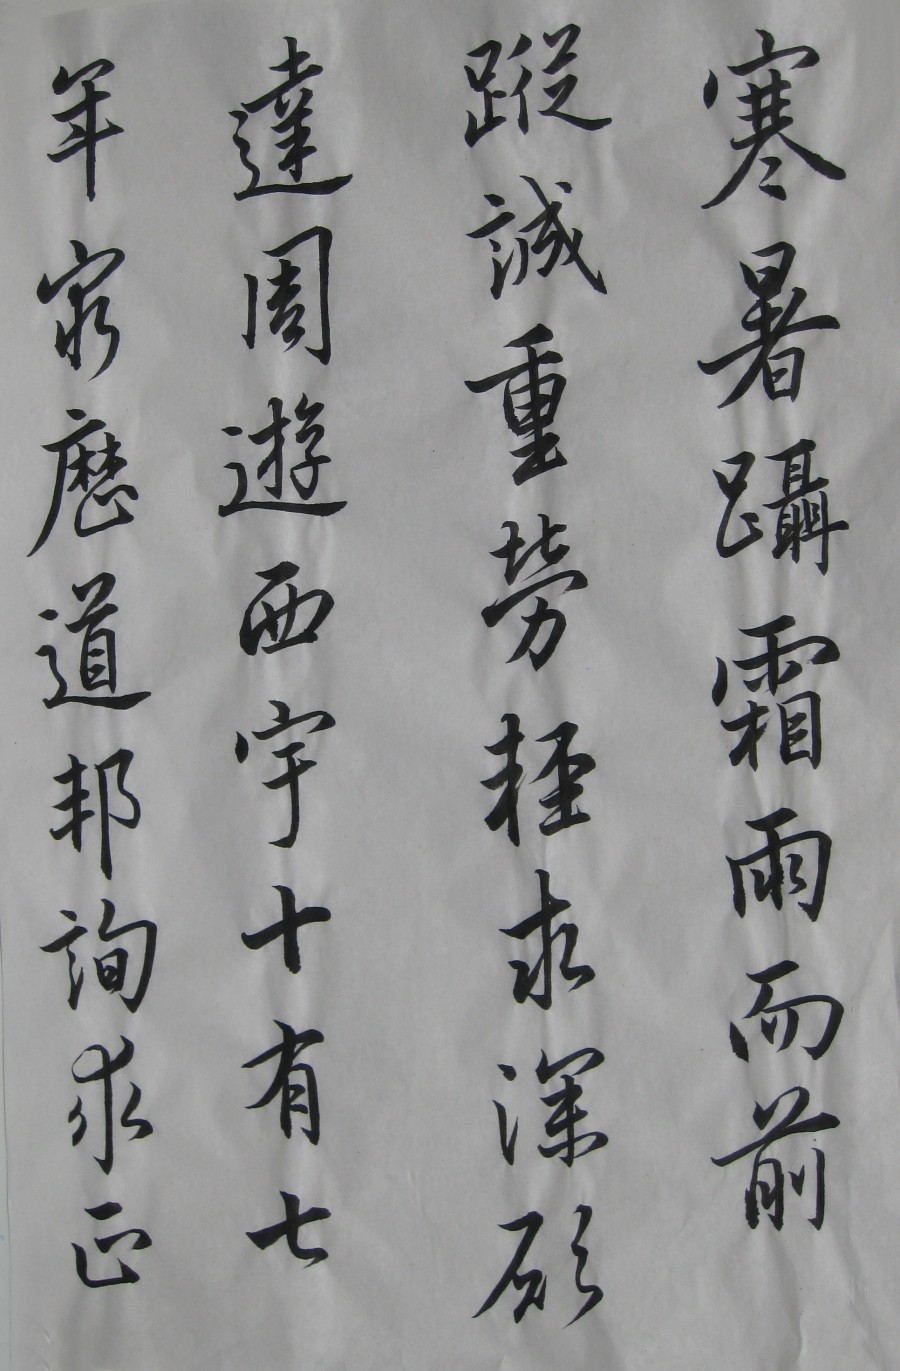 寒暑躡霜雨而前
蹤誠重勞輕求深願
達周遊西宇十有七
年窮歷道邦詢求正